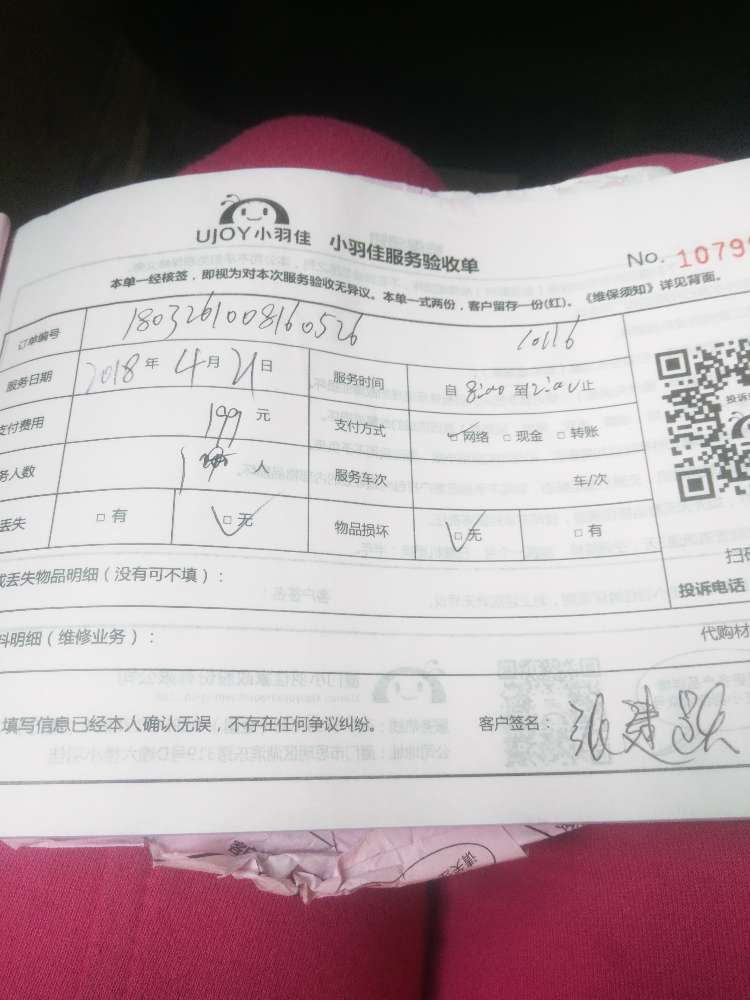 UJOY小羽佳 小羽佳服务验收单
No. 1079
本单一经核签，即视为对本次服务验收无异议。本单一式两份，客户留存一份(红)。《维保须知》详见背面。
订单编号 1803261008160526 10116
服务日期 2018 年 4 月 21 日 服务时间 自 8:00 到 止
支付费用 199 元 支付方式 ☑网络 □现金 □转账
务人数 1 人 服务车次 车/次
丢失 □有 ☑无 物品损坏 ☑无 □有
或丢失物品明细（没有可不填）：
投诉电话
料明细（维修业务）：
代购材
填写信息已经本人确认无误，不存在任何争议纠纷。
客户签名：